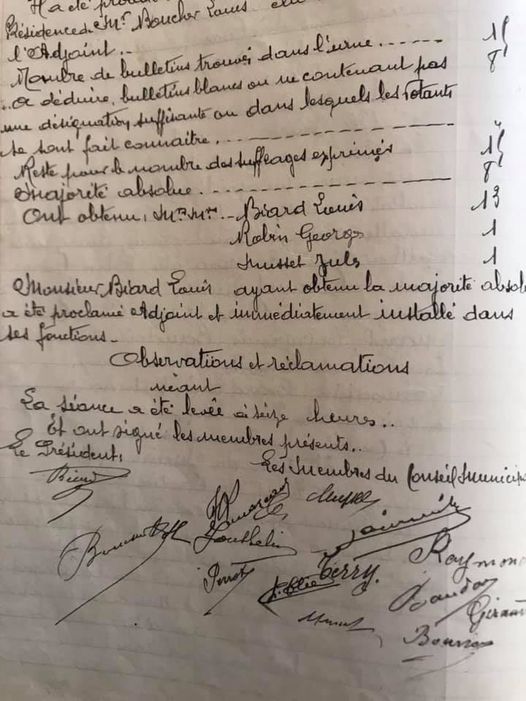 Il a été proc
Résidence de Mr Boucher Louis
l'Adjoint..
Nombre de bulletins trouvés dans l'urne ------ 15
a déduire, bulletins blancs ou ne contenant pas
une désignation suffisante ou dans lesquels les votants
se sont fait connaitre. ------------
Reste pour le nombre des suffrages exprimés 15
Majorité absolue. ------------ 8
Ont obtenu, Mrs Mrs -- Biard Louis 13
Robin Georges 1
Musset Juls 1
Monsieur Biard Louis ayant obtenu la majorité absol
a été proclamé Adjoint et immédiatement installé dans
ses fonctions.
Observations et réclamations
néant
La séance a été levée à seize heures..
Et ont signé les membres présents..
Le Président,
Les Membres du Conseil Municip
Terry.
Raymond
Giraud